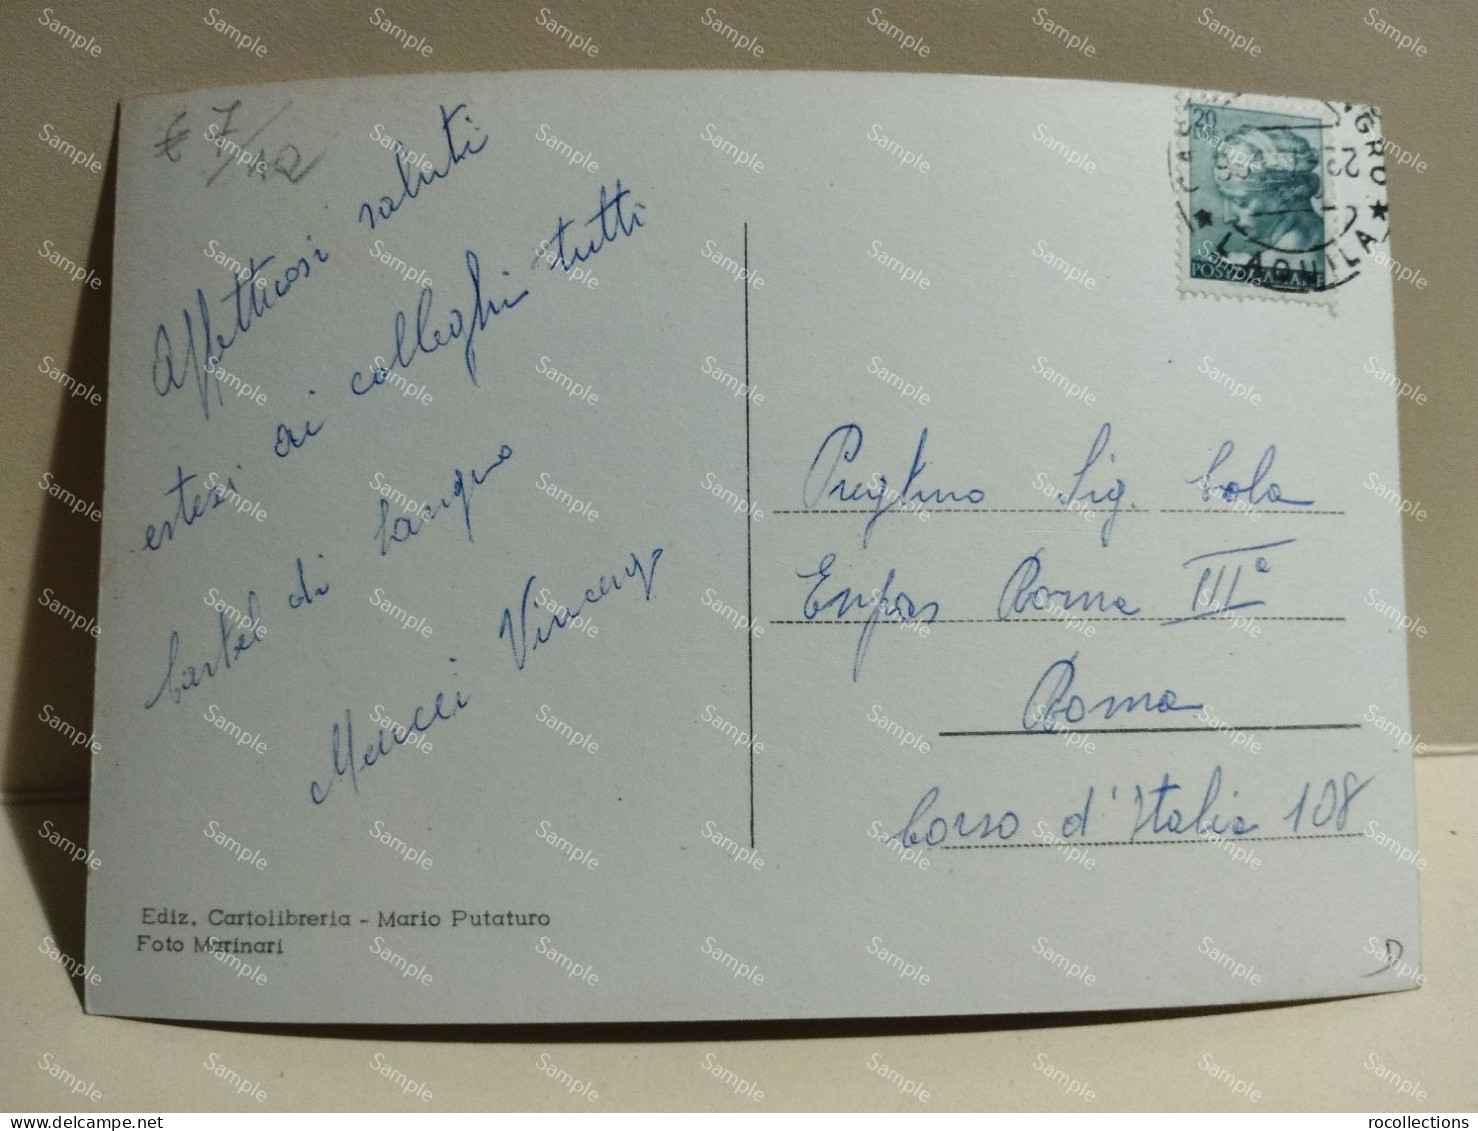 € 7/12
Affettuosi saluti
estesi ai colleghi tutti
Castel di Sangro
Vincenzo
20
POSTE ITALIANE
★ L'AQUILA ★
Sig. Cola
Enpas Roma IIIª
Roma
Corso d'Italia 108
Ediz. Cartolibreria - Mario Putaturo
Foto Marinari
D
rocollections